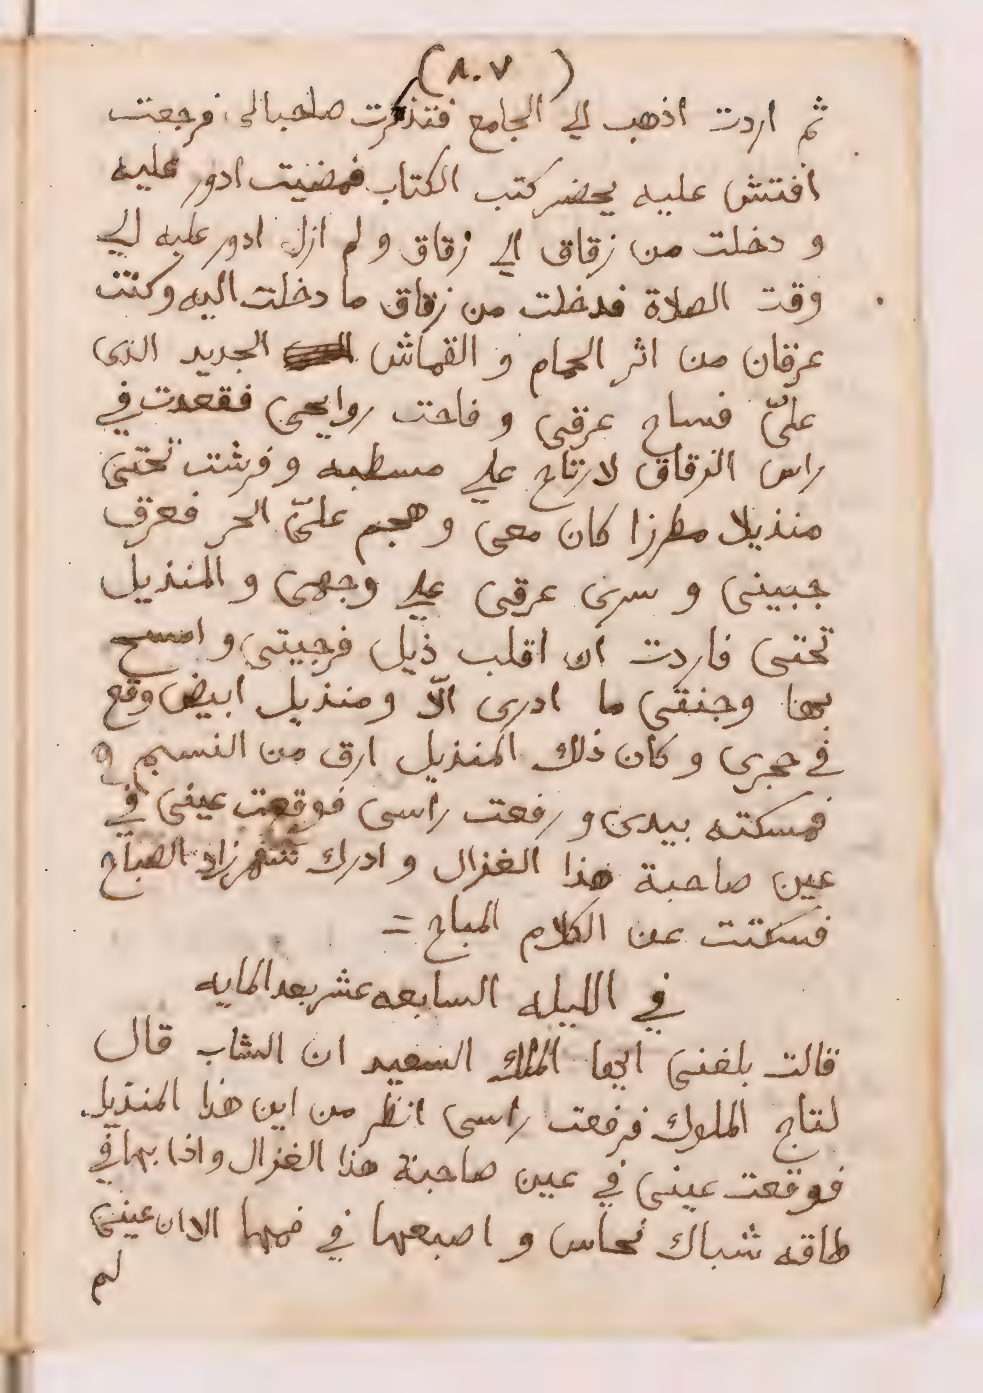 (٨٠٧)
ثم اردت اذهب الي الجامع فتذكرت صاحبا لي فرجعت
افتش عليه يحضر كتب الكتاب فمضيت ادور عليه
و دخلت من زقاق الي زقاق و لم ازل ادور عليه الي
وقت الصلاة فدخلت من زقاق ما دخلت اليه وكنت
عرقان من اثر الحمام و القماش الجديد الذى
علىّ فساح عرقى و فاحت روايحى فقعدت في
راس الزقاق لارتاح علي مسطبه و فرشت تحتى
منذيلا مطرزا كان معى و هجم علىّ الحر فعرق
جبينى و سرى عرقى علي وجهى و المنذيل
تحتى فاردت ان اقلب ذيل فرجيتى و امسح
بها وجنتى ما ادرى الّا و منذيل ابيض وقع
في حجرى و كان ذلك المنذيل ارق من النسيم و
فمسكته بيدى و رفعت راسى فوقعت عينى في
عين صاحبة هذا الغزال و ادرك شهرزاد الصباح
فسكتت عن الكلام المباح =
في الليله السابعه عشر بعد المايه
قالت بلغنى ايها الملك السعيد ان الشاب قال
لتاج الملوك فرفعت راسى انظر من اين هذا المنذيل
فوقعت عينى في عين صاحبة هذا الغزال و اذا بها في
طاقه شباك نحاس و اصبعها في فمها الا ان عينى
لم